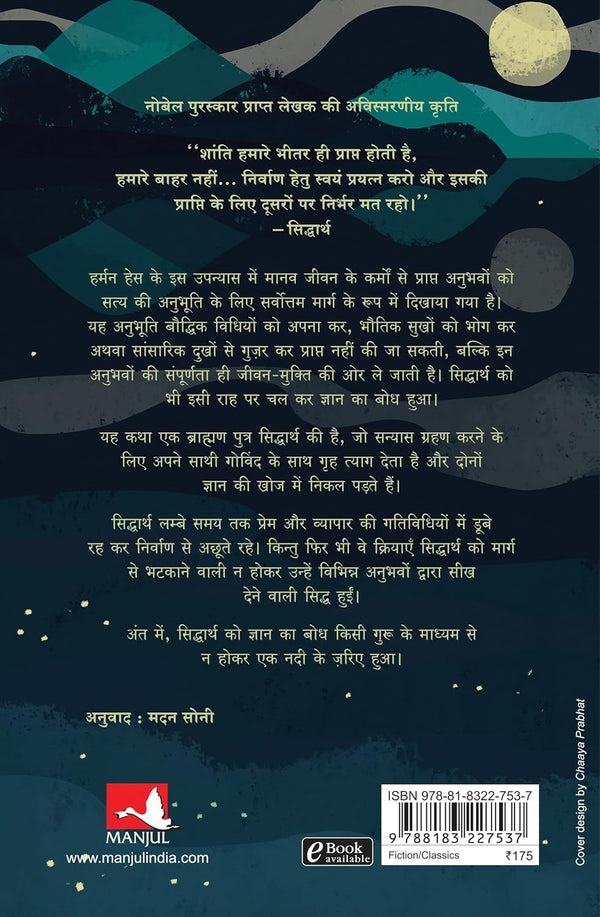 नोबेल पुरस्कार प्राप्त लेखक की अविस्मरणीय कृति
‘‘शांति हमारे भीतर ही प्राप्त होती है,
हमारे बाहर नहीं... निर्वाण हेतु स्वयं प्रयत्न करो और इसकी
प्राप्ति के लिए दूसरों पर निर्भर मत रहो।’’
– सिद्धार्थ
हर्मन हेस के इस उपन्यास में मानव जीवन के कर्मों से प्राप्त अनुभवों को
सत्य की अनुभूति के लिए सर्वोत्तम मार्ग के रूप में दिखाया गया है।
यह अनुभूति बौद्धिक विधियों को अपना कर, भौतिक सुखों को भोग कर
अथवा सांसारिक दुखों से गुज़र कर प्राप्त नहीं की जा सकती, बल्कि इन
अनुभवों की संपूर्णता ही जीवन-मुक्ति की ओर ले जाती है। सिद्धार्थ को
भी इसी राह पर चल कर ज्ञान का बोध हुआ।
यह कथा एक ब्राह्मण पुत्र सिद्धार्थ की है, जो सन्यास ग्रहण करने के
लिए अपने साथी गोविंद के साथ गृह त्याग देता है और दोनों
ज्ञान की खोज में निकल पड़ते हैं।
सिद्धार्थ लम्बे समय तक प्रेम और व्यापार की गतिविधियों में डूबे
रह कर निर्वाण से अछूते रहे। किन्तु फिर भी वे क्रियाएँ सिद्धार्थ को मार्ग
से भटकाने वाली न होकर उन्हें विभिन्न अनुभवों द्वारा सीख
देने वाली सिद्ध हुईं।
अंत में, सिद्धार्थ को ज्ञान का बोध किसी गुरू के माध्यम से
न होकर एक नदी के ज़रिए हुआ।
अनुवाद : मदन सोनी
MANJUL
www.manjulindia.com
eBook
available
ISBN 978-81-8322-753-7
9 788183 227537
Fiction/Classics ₹175
Cover design by Chaaya Prabhat